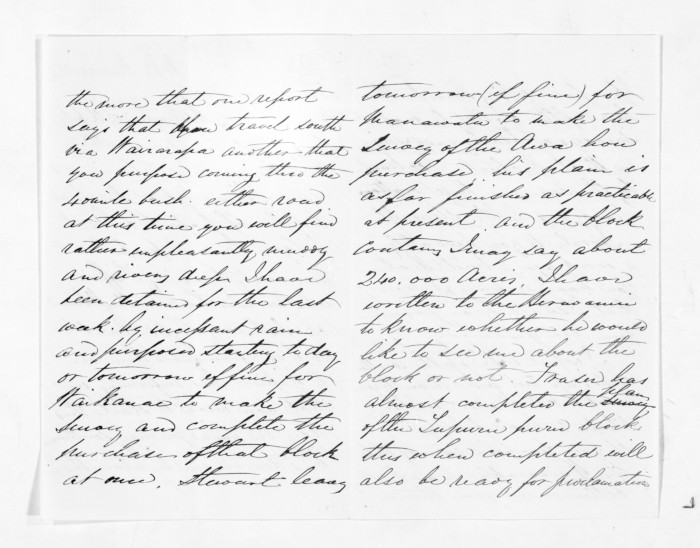 the more that one report
says that you travel south
via Wairarapa another that
you purpose coming thro the
40 mile bush. either road
at this time you will find
rather unpleasantly muddy
and rivers deep. I have
been detained for the last
week. by incessant rain
and purposed starting to day
or tomorrow if fine for
Waikanae to make the
survey and complete the
purchase of that block
at once. Stewart leaves
tomorrow (if fine) for
Manawatu to make the
Survey of the Awa hou
purchase his plan is
as far finished as practicable
at present and the block
contains I may say about
240.000 Acres, I have
written to the
to know whether he would
like to see me about the
block or not. Fraser has
almost completed the plan
of the Tupurupuru block
this when completed will
also be ready for proclamation